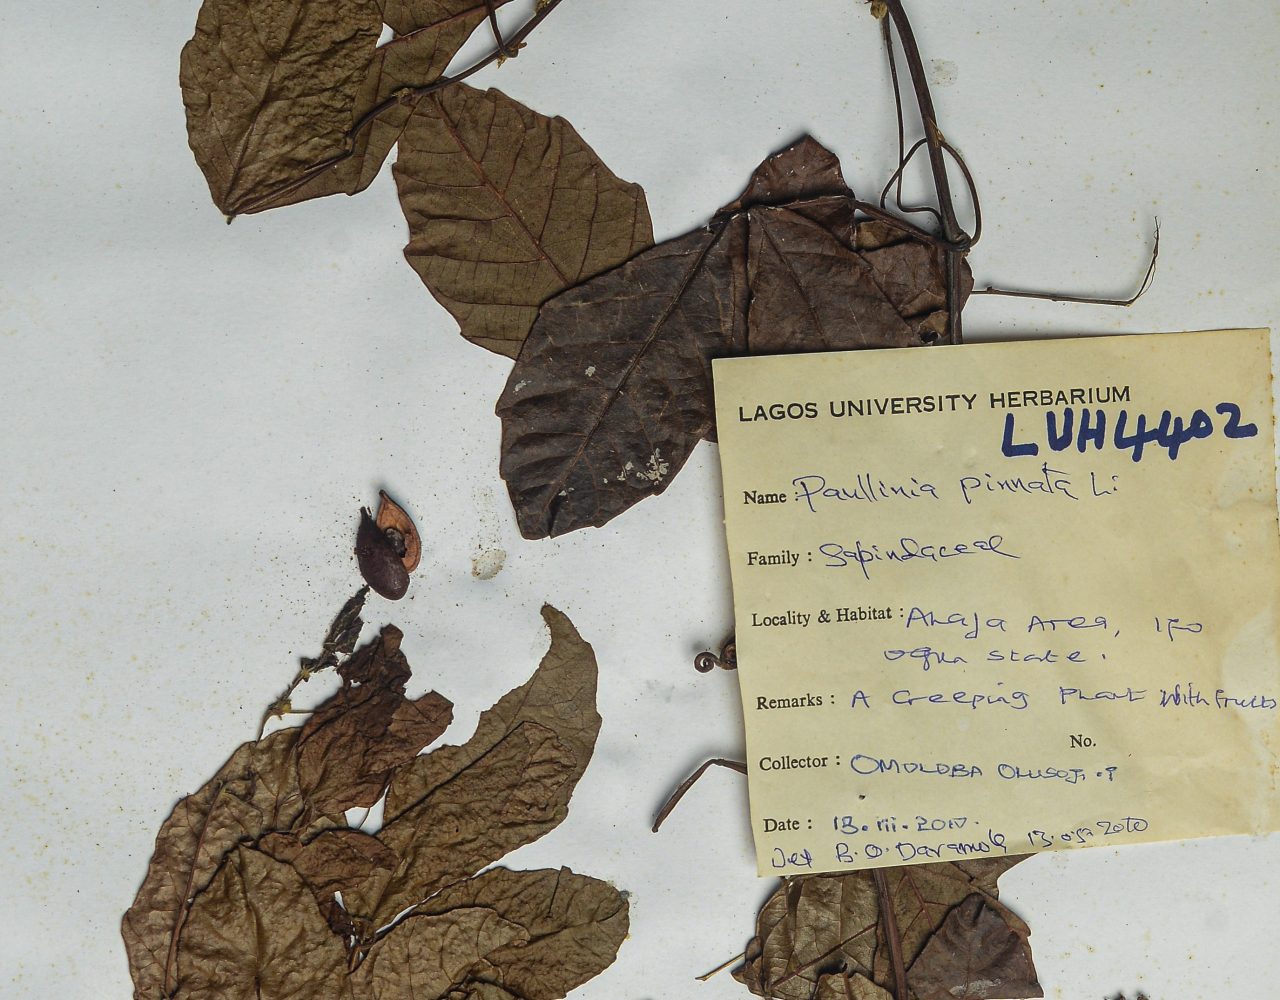 LAGOS UNIVERSITY HERBARIUM
LUH4402
Name : Paullinia pinnata Li
Family : Sapindaceae
Locality & Habitat : Ahaja Area, Ifo
ogun state.
Remarks : A Creeping Plant with fruits
No.
Collector : OMOLOBA OLUSOJI.
Date : 13.iii.2010.
Det B.O. Daramola